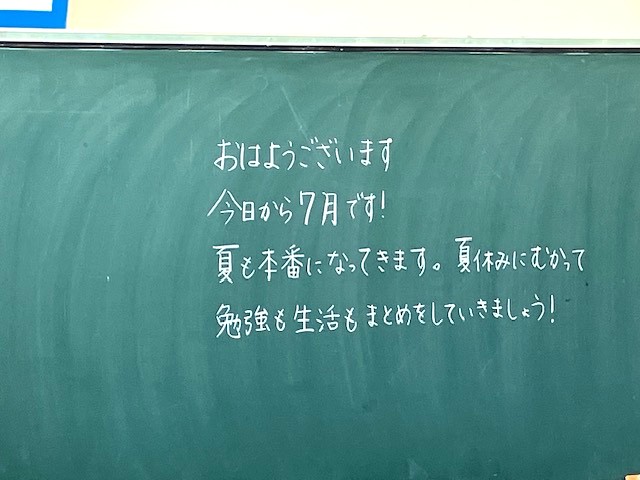 おはようございます
今日から7月です!
夏も本番になってきます。夏休みにむかって
勉強も生活もまとめをしていきましょう!